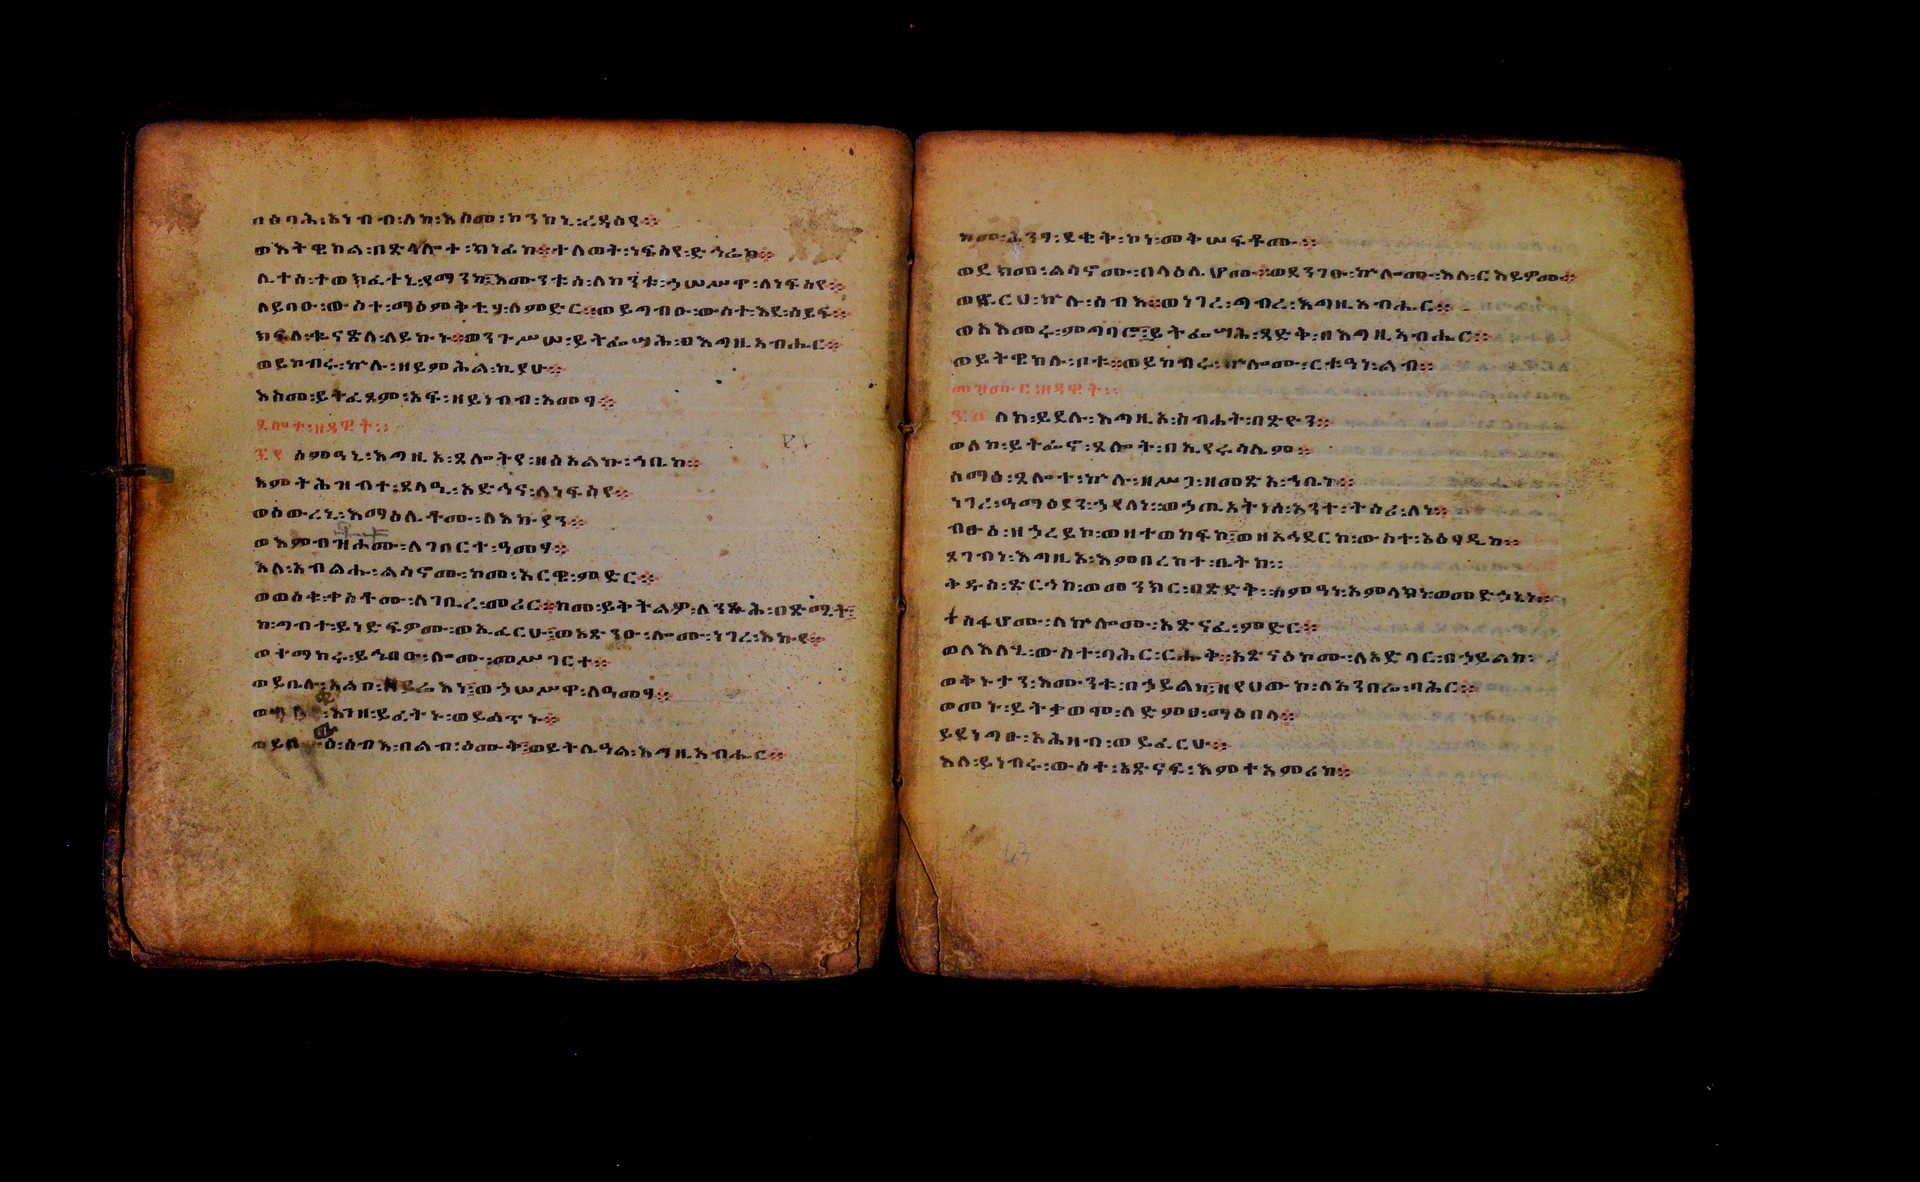 በጽባሕ፡እነብብ፡ለከ፡እስመ፡ኮንከኒ፡ረዳእየ።
ወእትዌከል፡በጽላሎተ፡ክነፊከ።ተለወት፡ነፍስየ፡ድኅሬከ።
ሊተሰ፡ተወክፈተኒ፡የማንከ።እሙንቱሰ፡ለከንቱ፡ኃሠሥዋ፡ለነፍስየ።
ለይባዑ፡ውስተ፡ማዕምቅቲሃ፡ለምድር።ወይግብኡ፡ውስተ፡እደ፡ሰይፍ።
ክፍለ፡ቈናጽለ፡ለይኩኑ።ወንጉሥሠ፡ይትፌሣሕ፡በእግዚአብሔር።
ወይከብሩ፡ኵሉ፡ዘይምሕል፡ኪያሁ።
እስመ፡ይትፈጸም፡አፍ፡ዘይነብብ፡አመፃ።
ጸሎት፡ዘዳዊት።
፷፫ ስምዓኒ፡እግዚኦ፡ጸሎትየ፡ዘሰአልኩ፡ኀቤከ።
እምትሕዝብተ፡ጸላዒ፡አድኅና፡ለነፍስየ።
ወሰውረኒ፡እማዕሌቶሙ፡ለእኩያን።
ወእምብዝኖሙ፡ለገበርተ፡ዓመፃ።
እለ፡አብልሑ፡ልሳኖሙ፡ከመ፡አርዌ፡ምድር።
ወወሰቁ፡ቀስቶሙ፡ለገቢረ፡መሪር።ከመ፡ይቅትልዎ፡ለንጹሕ፡በጽሚት፡
ከ፡ግብተ፡ይነድፍዎሙ፡ወኢፈርሁ።ወአጽንዑ፡ሎሙ፡ነገረ፡እኩየ።
ወተማከሩ፡ይኅብዑ፡ሎሙ፡መሥገርተ።
ወይቤሉ፡አልቦ፡ዘይሬእነ።ወኃሠሥዋ፡ለዓመፃ።
እንዘ፡ይፈትኑ፡ወይልጥኑ።
ሰብእ፡በልብ፡ዕሙቅ።ወይትሌዓል፡እግዚአብሔር።
ከመ፡ሕንፃ፡ደቂቅ፡ኮነ፡መቅሠፍቶሙ።
ወደክመ፡ልሳኖሙ፡በላዕሌሆሙ።ወደንገፁ፡ኵሎሙ፡እለ፡ርእይዎሙ።
ወፈርሀ፡ኵሉ፡ሰብእ።ወነገረ፡ግብረ፡እግዚአብሔር።
ወአእመሩ፡ምግባሮ።ይትፌሣሕ፡ጻድቅ፡በእግዚአብሔር።
ወይትዌከሉ፡ቦቱ።ወይከብሩ፡ኵሎሙ፡ርቱዓነ፡ልብ።
መዝሙር፡ዘዳዊት።
፷፬ ለከ፡ይደሉ፡እግዚኦ፡ስብሐት፡በጽዮን።
ወለከ፡ይትፌኖ፡ጸሎት፡በኢየሩሳሌም።
ስማዕ፡ጸሎተ፡ኵሉ፡ዘሥጋ፡ዘመጽአ፡ኀቤነ።
ነገረ፡ዓማፅያን፡ኃየለነ።ወኃጢአትነሰ፡አንተ፡ትስሪ፡ለነ።
ብፁዕ፡ዘኃረይኮ፡ወዘተወከፍኮ።ወዘአኅደርከ፡ውስተ፡አዕፃዲከ።
ጸገብነ፡እግዚኦ፡እምበረከተ፡ቤትከ።
ቅዱስ፡ጽርሕከ፡ወመንክር፡በጽድቅ።ስምዓነ፡አምላክነ፡ወመድኃኒነ።
ተስፋሆሙ፡ለኵሎሙ፡አጽናፈ፡ምድር።
ወለእለሂ፡ውስተ፡ባሕር፡ርሑቅ።አጽናዕኮሙ፡ለአድባር፡በኃይልከ፡
ወቅኑታን፡እሙንቱ፡በኃይልከ።ዘየሀውኮ፡ለአንበሬ፡ባሕር።
ወመኑ፡ይትቃወሞ፡ለድምፀ፡ማዕበላ።
ይደነግፁ፡አሕዛብ፡ወይፈርሁ።
እለ፡ይነብሩ፡ውስተ፡አጽናፍ፡እምተአምሪከ።